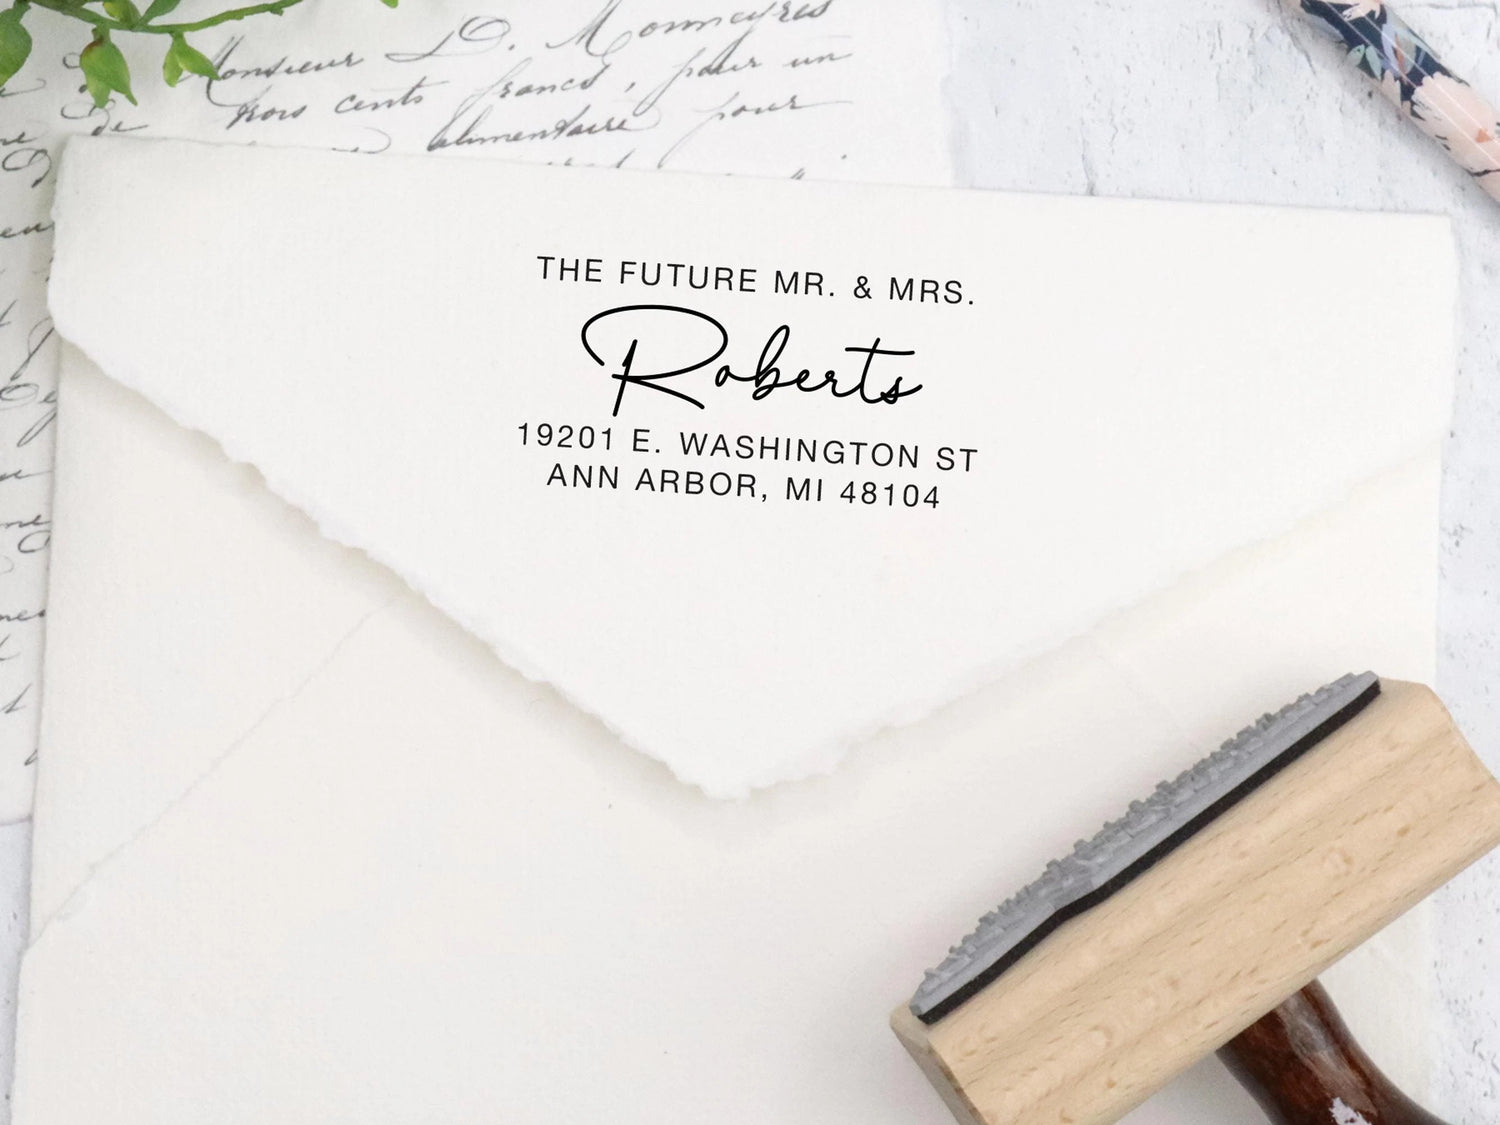 Monsieur D. Monneyres
trois cents francs, pour un
de alimentaire pour
THE FUTURE MR. & MRS.
Roberts
19201 E. WASHINGTON ST
ANN ARBOR, MI 48104